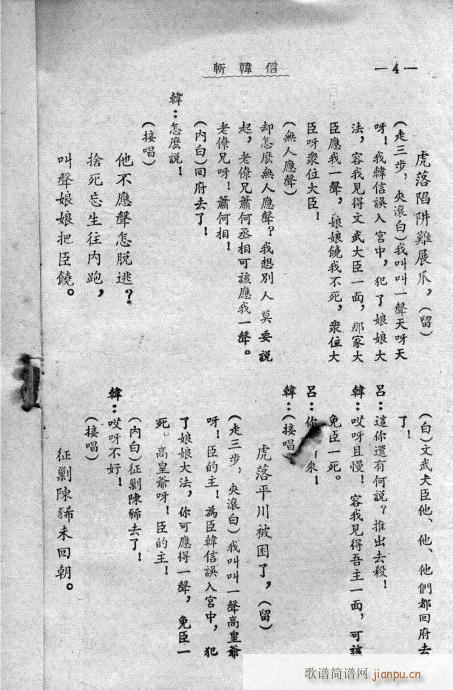 斬韓信
—4—
虎落陷阱難展爪，(留)
(走三步，夾滾白)我叫叫一聲天呀天
呀！我韓信誤入宮中，犯了娘娘大
法，容我見得文武大臣一面，那家大
臣應我一聲，娘娘饒我不死，衆位大
臣呀衆位大臣！
(無人應聲)
却怎麽無人應聲？我想別人莫要說
起，老僚兄蕭何丞相可該應我一聲。
老僚兄呀！蕭何相！
(內白)回府去了！
韓：怎麽說！
(接唱)
他不應聲怎脫逃？
捨死忘生往內跑，
叫聲娘娘把臣饒。
(白)文武大臣他、他、他們都回府去
了！
呂：這你還有何說？推出去殺！
韓：哎呀且慢！容我見得吾主一面，可該
免臣一死。
呂：你 來！
韓：(接唱)
虎落平川被困了，(留)
(走三步，夾滾白)我叫叫一聲高皇爺
呀！臣的主！爲臣韓信誤入宮中，犯
了娘娘大法，你可應得一聲，免臣一
死。高皇爺呀！臣的主！
(內白)征剿陳豨去了！
韓：哎呀不好！
(接唱)
征剿陳豨未回朝。
歌谱简谱网
jianpu.cn